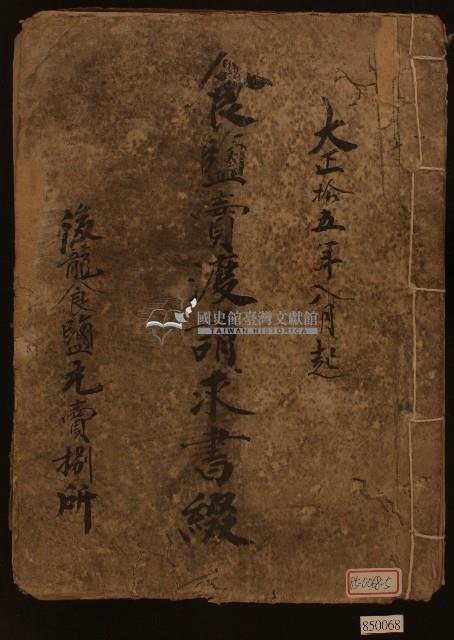 大正拾五年八月起
食鹽賣渡請求書綴
後龍食鹽元賣捌所
國史館臺灣文獻館
TAIWAN HISTORICA
85-0068-5
850068